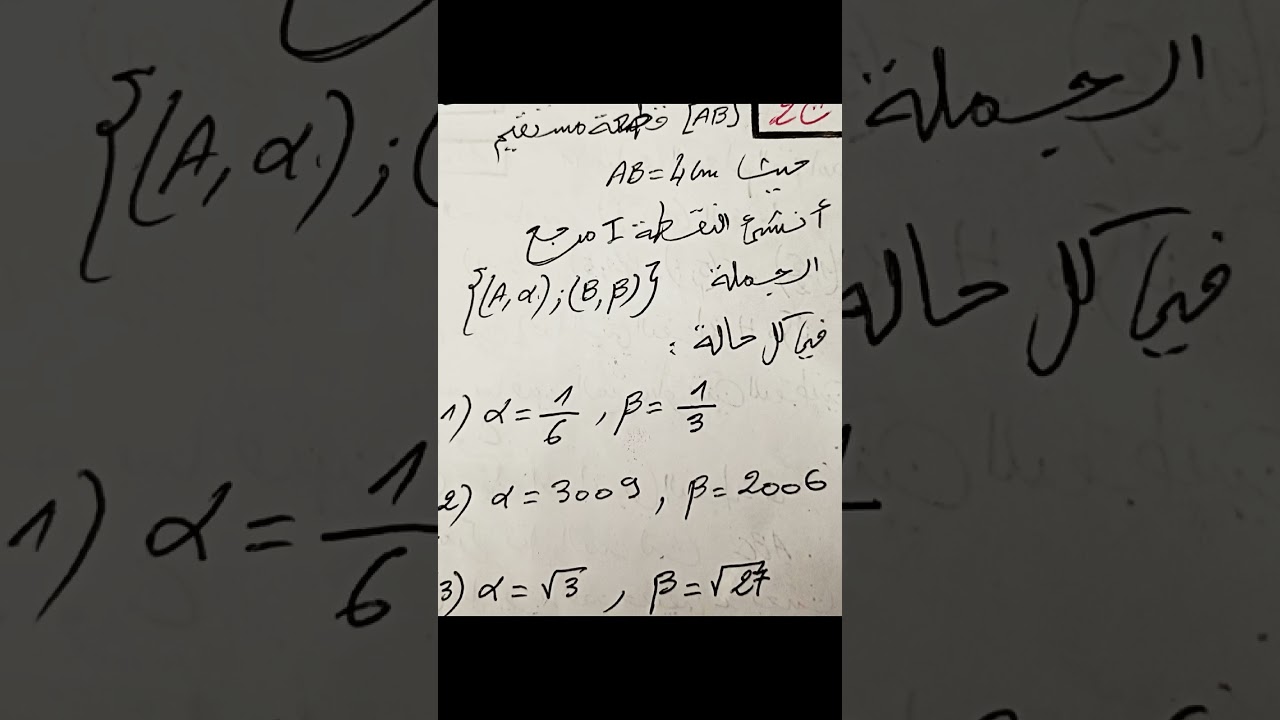 ت2 [AB] قطعة مستقيم
حيث AB = 4cm
أنشئ النقطة I مرجح
الجملة {(A, α); (B, β)}
في كل حالة :
1) α = 1/6 , β = 1/3
2) α = 3009 , β = 2006
3) α = √3 , β = √27